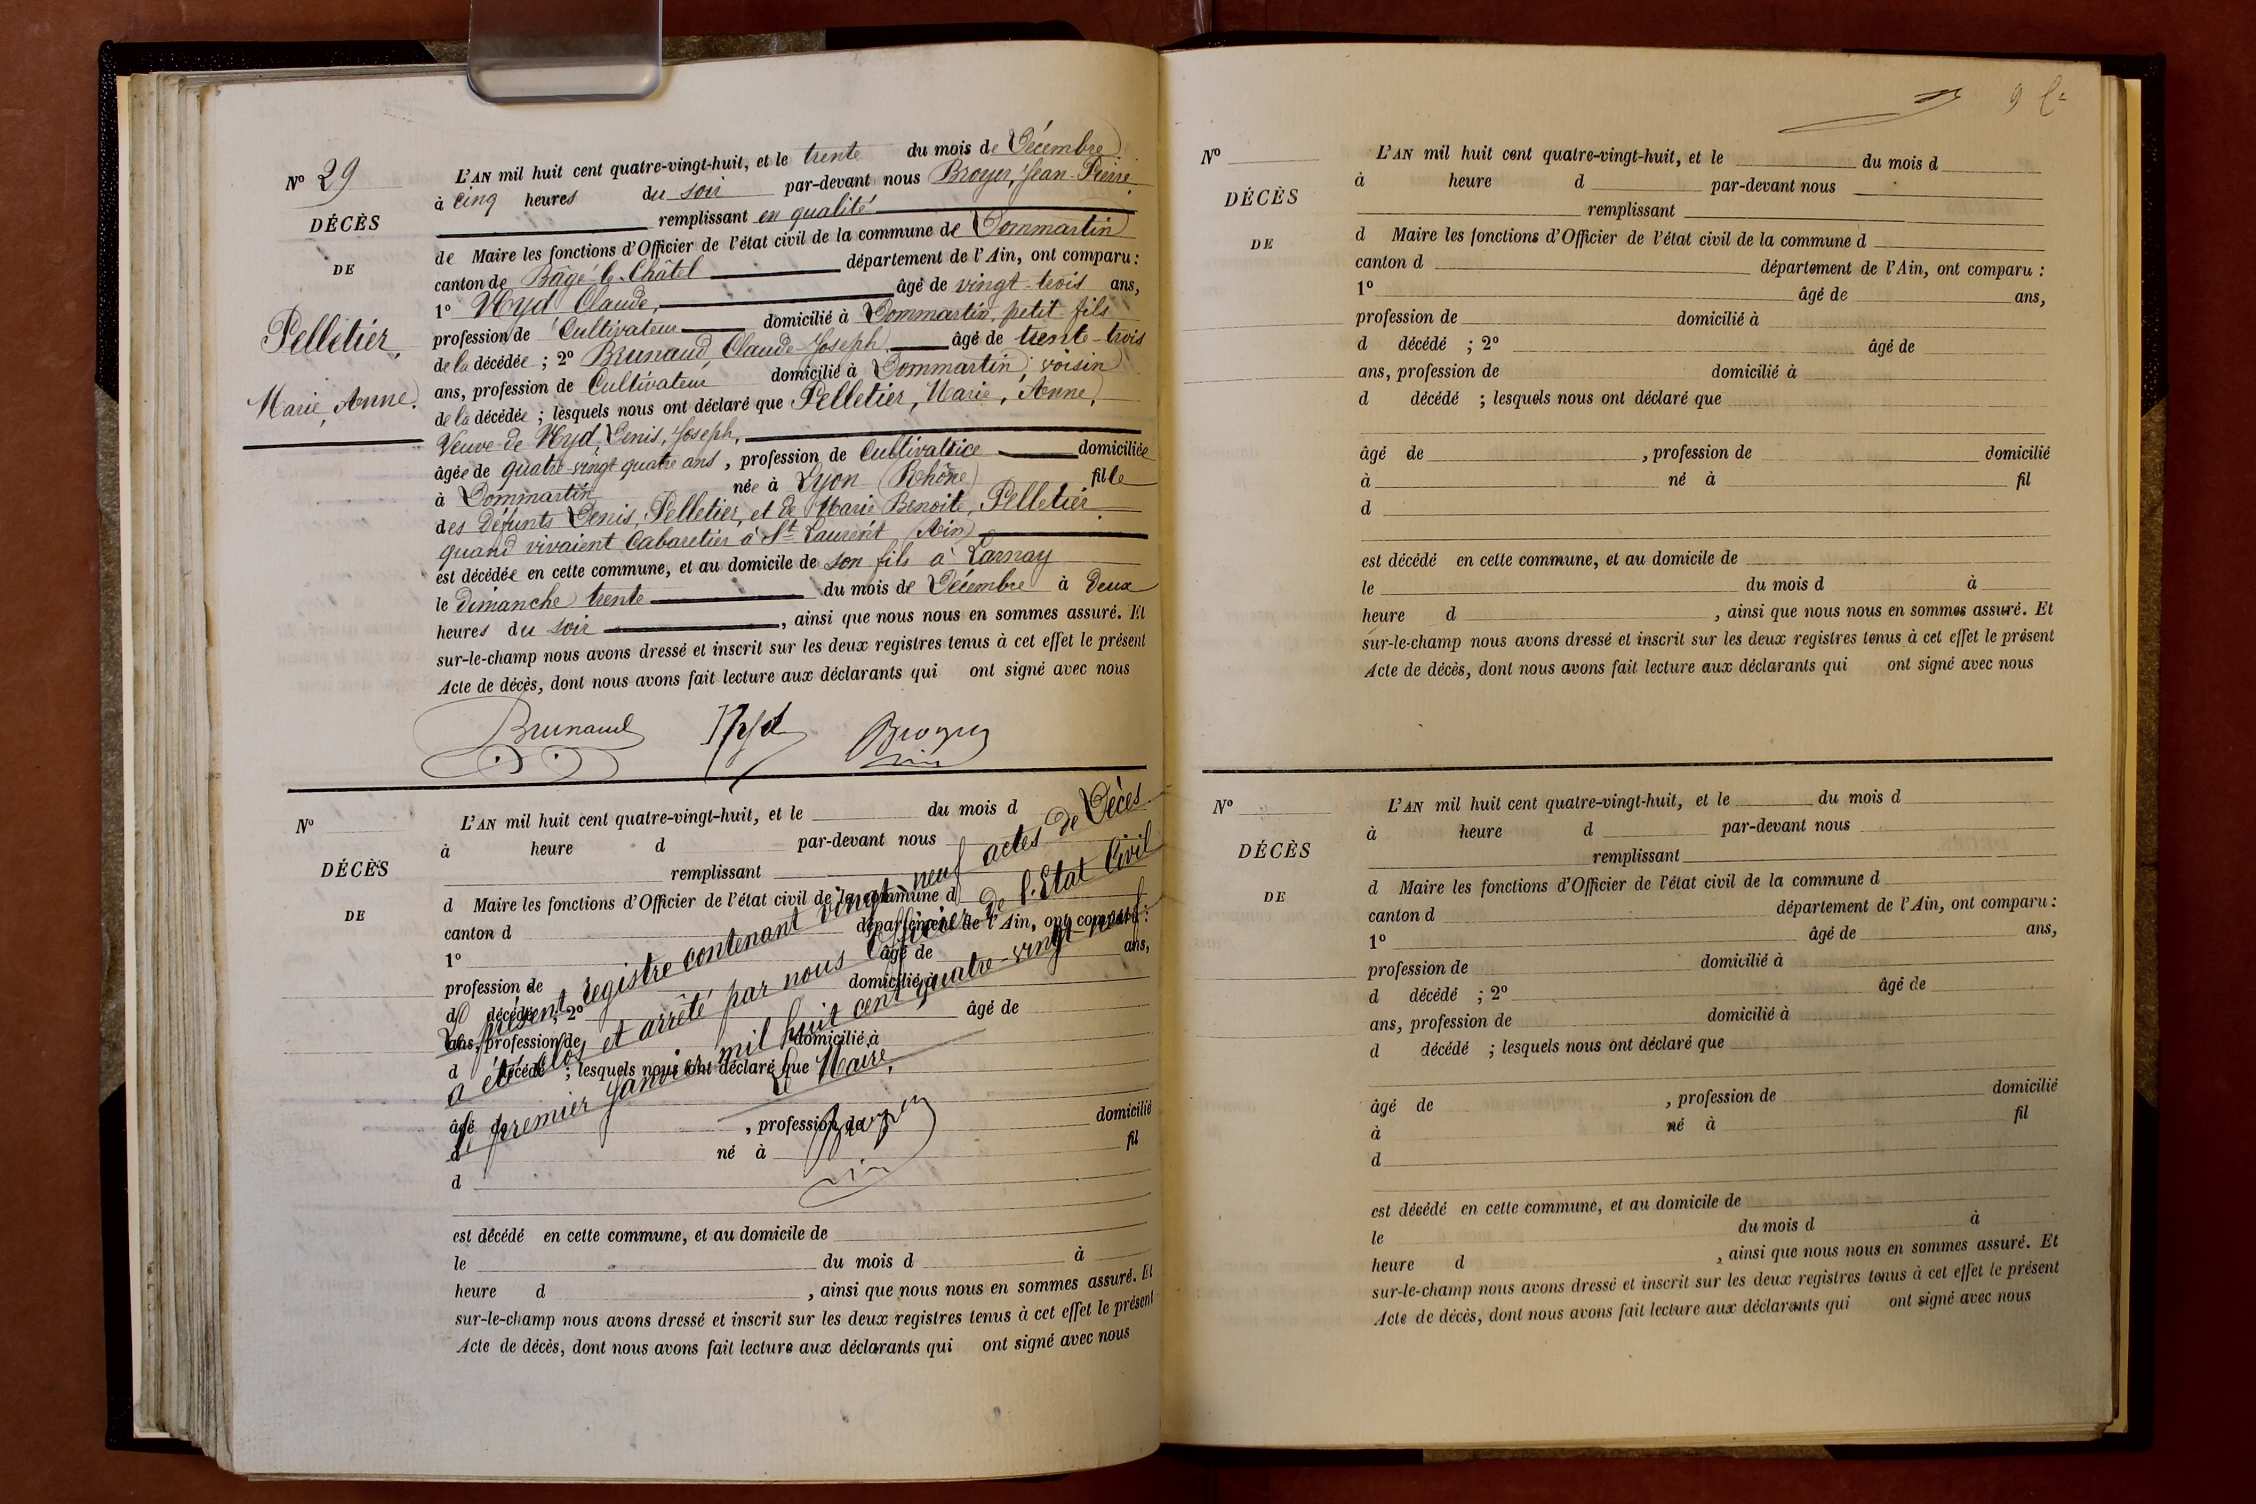 Nº 29
DÉCÈS
DE
Pelletier,
Marie, Anne.
L'AN mil huit cent quatre-vingt-huit, et le trente du mois de Décembre
à cinq heures du soir par-devant nous Broyer, Jean-Pierre,
remplissant en qualité
de Maire les fonctions d'Officier de l'état civil de la commune de Dommartin
canton de Bâgé-le-Châtel département de l'Ain, ont comparu :
1º Nyd Claude, âgé de vingt-trois ans,
profession de Cultivateur domicilié à Dommartin, petit-fils
de la décédée ; 2º Brunaud Claude-Joseph âgé de trente-trois
ans, profession de Cultivateur domicilié à Dommartin, voisin
de la décédée ; lesquels nous ont déclaré que Pelletier, Marie, Anne,
Veuve de Nyd, Denis, Joseph,
âgée de quatre-vingt quatre ans, profession de Cultivatrice domiciliée
à Dommartin née à Lyon (Rhône) fille
des défunts Denis, Pelletier, et de Marie Benoite, Pelletier
quand vivaient Cabaretier à St Laurent (Ain)
est décédée en cette commune, et au domicile de son fils à Larnay
le dimanche trente du mois de Décembre à deux
heures du soir , ainsi que nous nous en sommes assuré. Et
sur-le-champ nous avons dressé et inscrit sur les deux registres tenus à cet effet le présent
Acte de décès, dont nous avons fait lecture aux déclarants qui ont signé avec nous
Brunaud Nyd Broyer
Nº
DÉCÈS
DE
L'AN mil huit cent quatre-vingt-huit, et le du mois d
à heure d par-devant nous
remplissant
d Maire les fonctions d'Officier de l'état civil de la commune d
canton d département de l'Ain, ont comparu :
1º âgé de ans,
profession de domicilié à
d décédé ; 2º âgé de
ans, profession de domicilié à
d décédé ; lesquels nous ont déclaré que
âgé de , profession de domicilié
à né à fil
d
est décédé en cette commune, et au domicile de
le du mois d à
heure d , ainsi que nous nous en sommes assuré. Et
sur-le-champ nous avons dressé et inscrit sur les deux registres tenus à cet effet le présent
Acte de décès, dont nous avons fait lecture aux déclarants qui ont signé avec nous
Le présent registre contenant vingt-neuf actes de Décès
a été clos et arrêté par nous Officier de l'Etat Civil
le premier Janvier mil huit cent quatre-vingt-neuf.
Le Maire,
Broyer
9
Nº
DÉCÈS
DE
L'AN mil huit cent quatre-vingt-huit, et le du mois d
à heure d par-devant nous
remplissant
d Maire les fonctions d'Officier de l'état civil de la commune d
canton d département de l'Ain, ont comparu :
1º âgé de ans,
profession de domicilié à
d décédé ; 2º âgé de
ans, profession de domicilié à
d décédé ; lesquels nous ont déclaré que
âgé de , profession de domicilié
à né à fil
d
est décédé en cette commune, et au domicile de
le du mois d à
heure d , ainsi que nous nous en sommes assuré. Et
sur-le-champ nous avons dressé et inscrit sur les deux registres tenus à cet effet le présent
Acte de décès, dont nous avons fait lecture aux déclarants qui ont signé avec nous
Nº
DÉCÈS
DE
L'AN mil huit cent quatre-vingt-huit, et le du mois d
à heure d par-devant nous
remplissant
d Maire les fonctions d'Officier de l'état civil de la commune d
canton d département de l'Ain, ont comparu :
1º âgé de ans,
profession de domicilié à
d décédé ; 2º âgé de
ans, profession de domicilié à
d décédé ; lesquels nous ont déclaré que
âgé de , profession de domicilié
à né à fil
d
est décédé en cette commune, et au domicile de
le du mois d à
heure d , ainsi que nous nous en sommes assuré. Et
sur-le-champ nous avons dressé et inscrit sur les deux registres tenus à cet effet le présent
Acte de décès, dont nous avons fait lecture aux déclarants qui ont signé avec nous